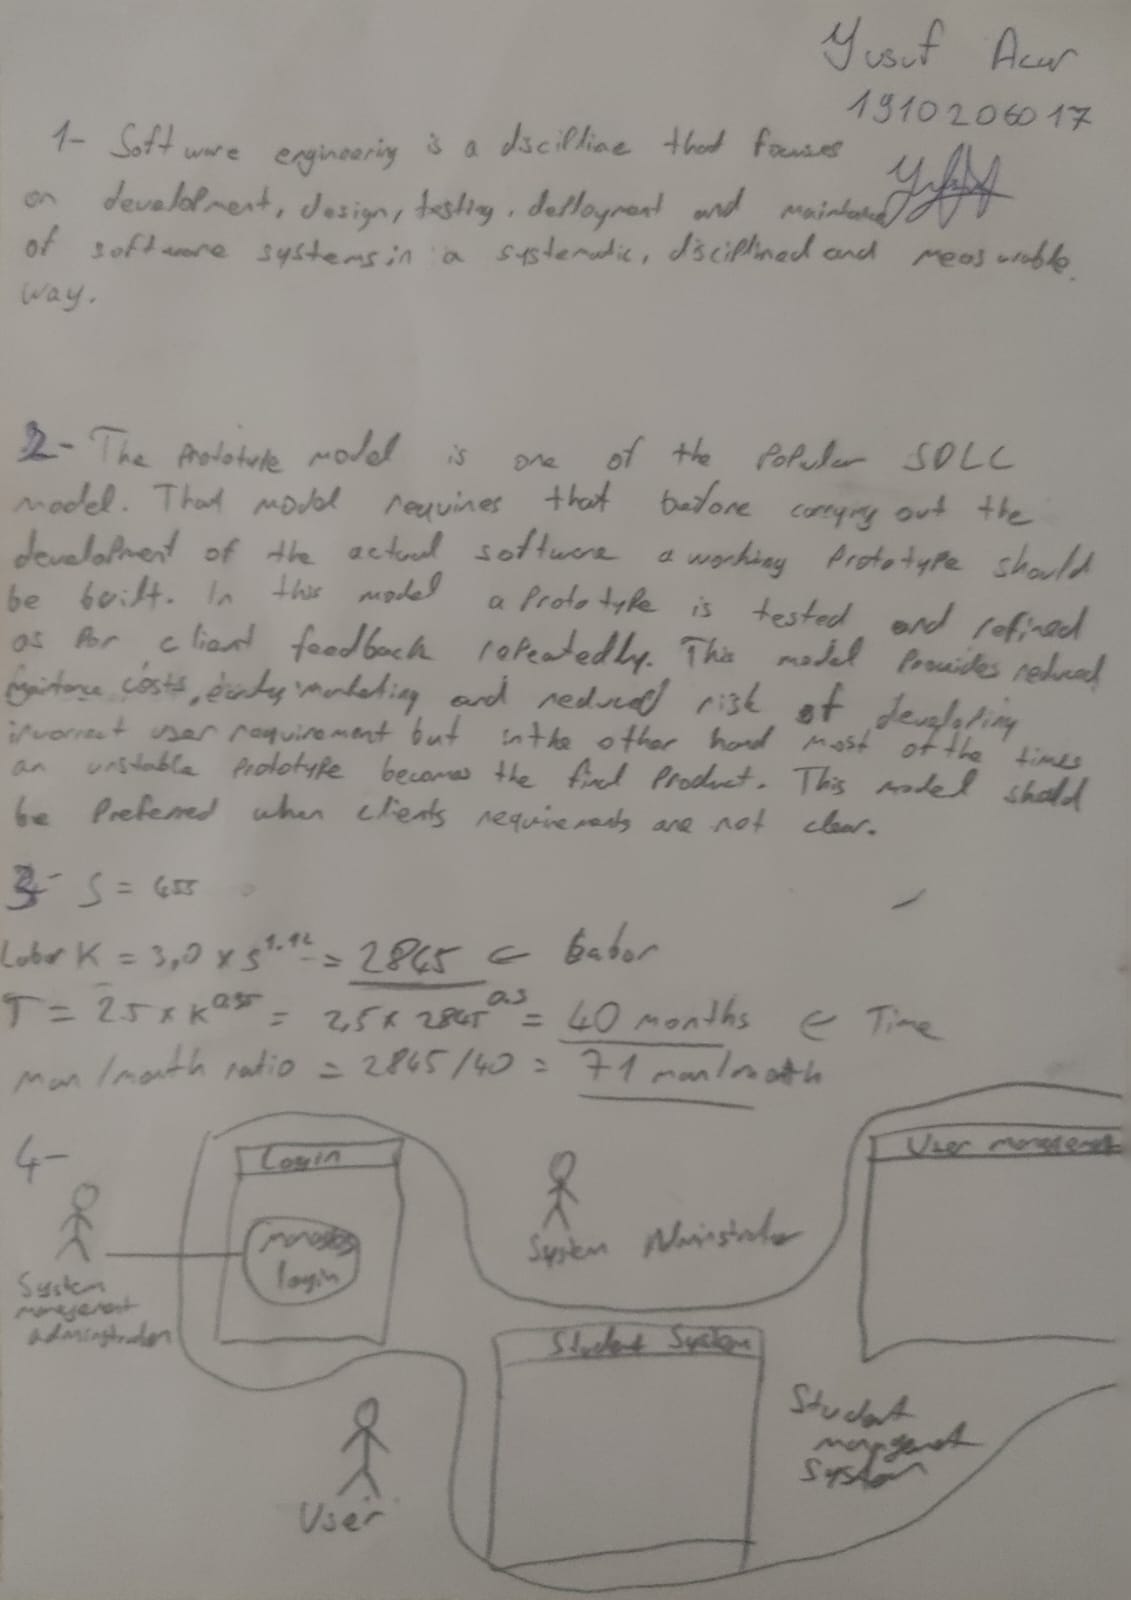 Yusuf Acar
1910206017
1- Software engineering is a discipline that focuses
on development, design, testing, deployment and
of software systems in a systematic, disciplined and measurable
way.
2- The Prototype model is one of the Popular SDLC
model. That model requires that before carrying out the
development of the actual software a working Prototype should
be built. In this model a Prototype is tested and refined
as Per client feedback repeatedly. This model Provides reduced
costs, early marketing and reduced risk of developing
incorrect user requirement but in the other hand most of the times
an unstable Prototype becomes the final Product. This model should
be Preferred when clients requirements are not clear.
3- S = 455
Labor K = 3,0 x S^1.12 = 2845 ← Labor
T = 2.5 x K^0.35 = 2,5 x 2845 = 40 months ← Time
man/month ratio = 2845/40 = 71 man/month
4-
Login
User management
System Administrator
manages
login
System
management
administration
Student System
Student
management
System
User